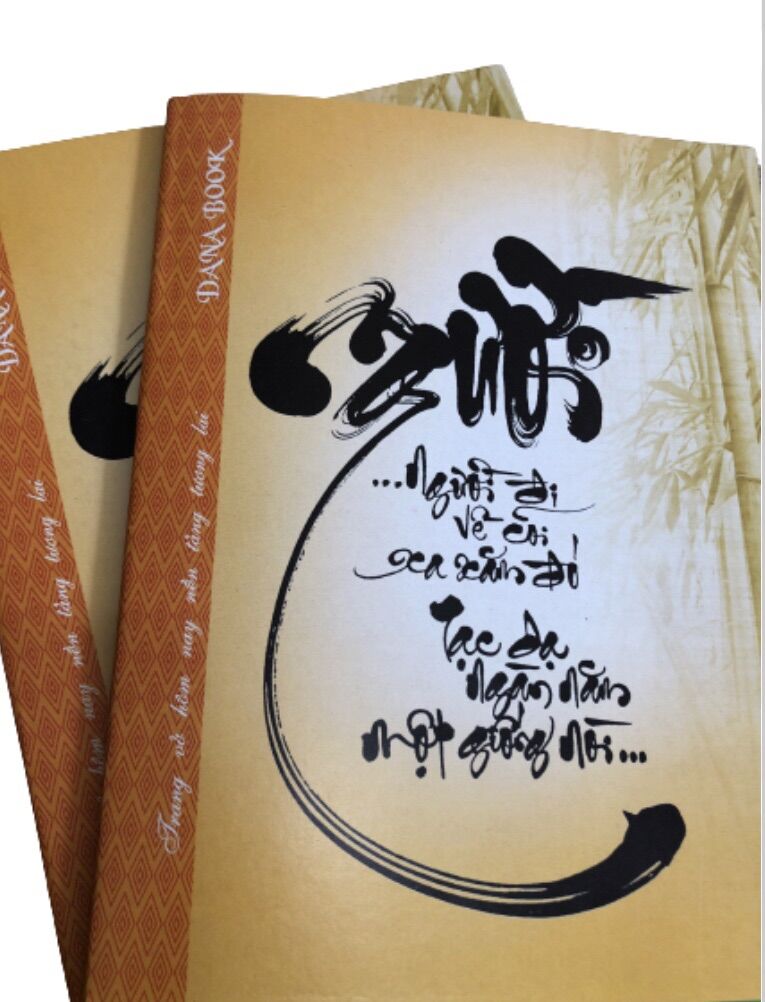 DANA BOOK
Trang vở hôm nay nền tảng tương lai
Người
...người đi
về cõi
xa xăm đó
Tạc dạ
ngàn năm
một giống nòi...
hôm nay nền tảng tương lai